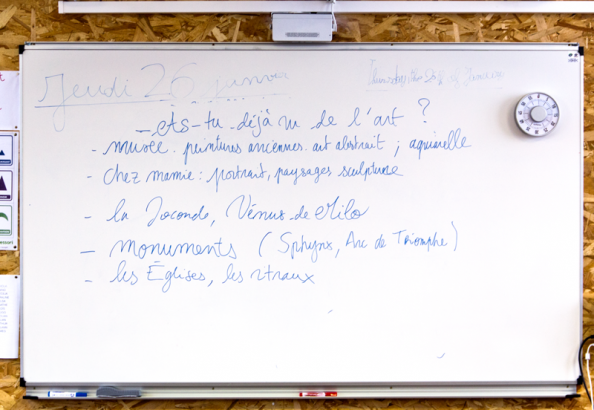 Jeudi 26 janvier
- As-tu déjà vu de l'art ?
- musée. peintures anciennes. art abstrait ; aquarelle
- chez mamie : portrait, paysages sculpture
- la Joconde, Vénus de Milo
- monuments (Sphynx, Arc de Triomphe)
- les Églises, les vitraux